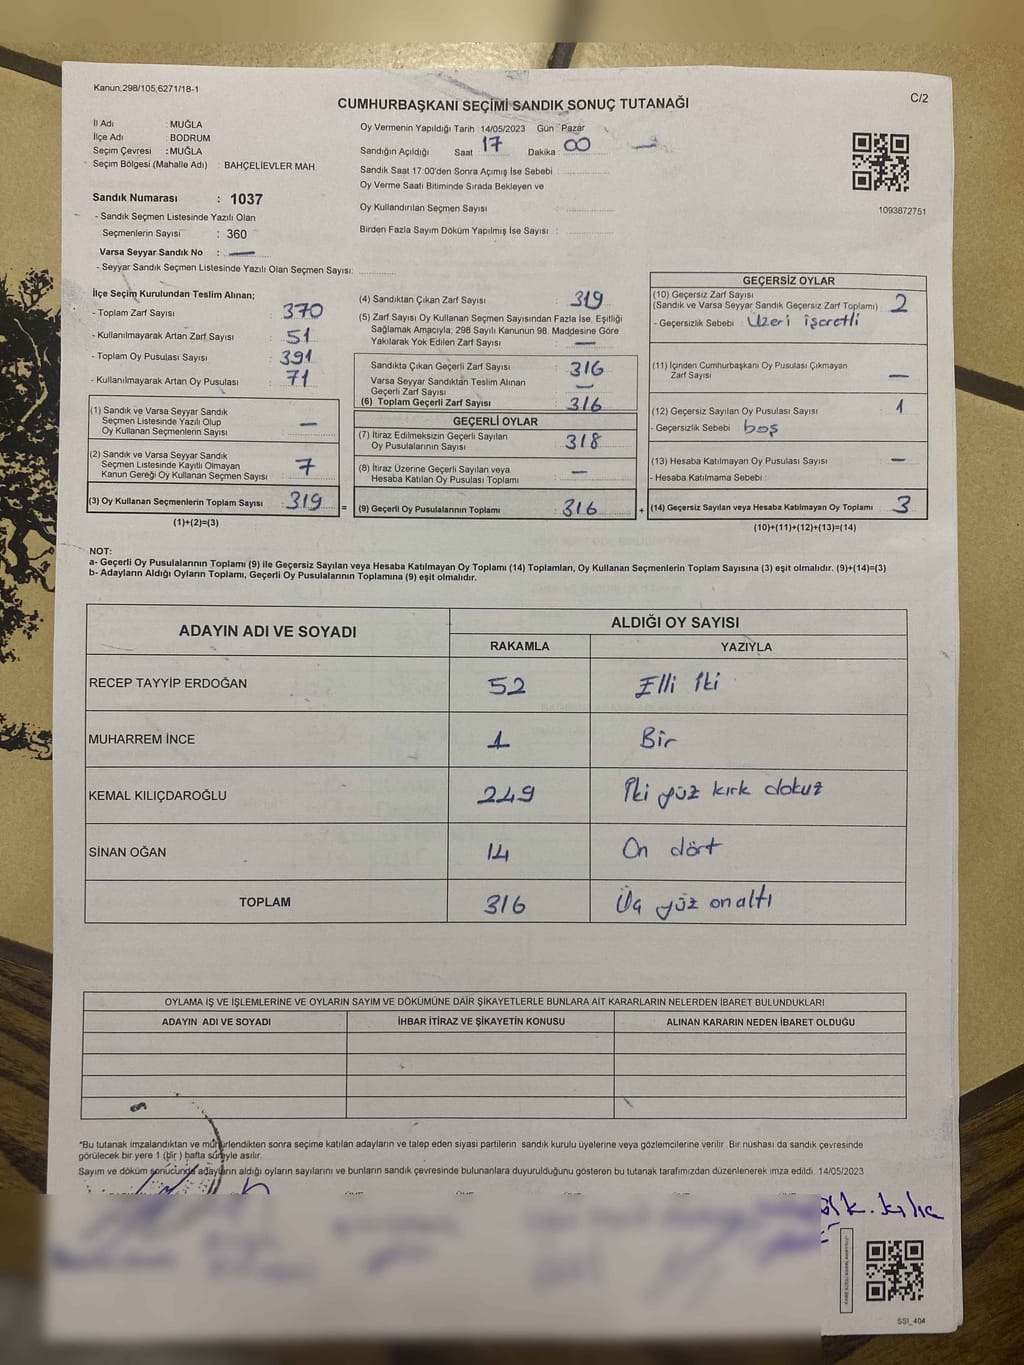 Kanun;298/105,6271/18-1
CUMHURBAŞKANI SEÇİMİ SANDIK SONUÇ TUTANAĞI
C/2
İl Adı : MUĞLA
İlçe Adı : BODRUM
Seçim Çevresi : MUĞLA
Seçim Bölgesi (Mahalle Adı) : BAHÇELİEVLER MAH.
Sandık Numarası : 1037
- Sandık Seçmen Listesinde Yazılı Olan
Seçmenlerin Sayısı : 360
Varsa Seyyar Sandık No : —
- Seyyar Sandık Seçmen Listesinde Yazılı Olan Seçmen Sayısı:
Oy Vermenin Yapıldığı Tarih 14/05/2023 Gün : Pazar
Sandığın Açıldığı Saat 17 Dakika : 00 —
Sandık Saat 17:00'den Sonra Açımış İse Sebebi :
Oy Verme Saati Bitiminde Sırada Bekleyen ve
Oy Kullandırılan Seçmen Sayısı :
Birden Fazla Sayım Döküm Yapılmış İse Sayısı :
1093872751
İlçe Seçim Kurulundan Teslim Alınan;
- Toplam Zarf Sayısı : 370
- Kullanılmayarak Artan Zarf Sayısı : 51
- Toplam Oy Pusulası Sayısı : 391
- Kullanılmayarak Artan Oy Pusulası : 71
(1) Sandık ve Varsa Seyyar Sandık
Seçmen Listesinde Yazılı Olup
Oy Kullanan Seçmenlerin Sayısı : —
(2) Sandık ve Varsa Seyyar Sandık
Seçmen Listesinde Kayıtlı Olmayan
Kanun Gereği Oy Kullanan Seçmen Sayısı : 7
(3) Oy Kullanan Seçmenlerin Toplam Sayısı : 319 =
(1)+(2)=(3)
(4) Sandıktan Çıkan Zarf Sayısı : 319
(5) Zarf Sayısı Oy Kullanan Seçmen Sayısından Fazla İse, Eşitliği
Sağlamak Amacıyla; 298 Sayılı Kanunun 98. Maddesine Göre
Yakılarak Yok Edilen Zarf Sayısı : —
Sandıkta Çıkan Geçerli Zarf Sayısı : 316
Varsa Seyyar Sandıktan Teslim Alınan
Geçerli Zarf Sayısı : —
(6) Toplam Geçerli Zarf Sayısı : 316
GEÇERLİ OYLAR
(7) İtiraz Edilmeksizin Geçerli Sayılan
Oy Pusulalarının Sayısı : 318
(8) İtiraz Üzerine Geçerli Sayılan veya
Hesaba Katılan Oy Pusulası Toplamı : —
(9) Geçerli Oy Pusulalarının Toplamı : 316 +
GEÇERSİZ OYLAR
(10) Geçersiz Zarf Sayısı
(Sandık ve Varsa Seyyar Sandık Geçersiz Zarf Toplamı) : 2
- Geçersizlik Sebebi : Üzeri işaretli
(11) İçinden Cumhurbaşkanı Oy Pusulası Çıkmayan
Zarf Sayısı : —
(12) Geçersiz Sayılan Oy Pusulası Sayısı : 1
- Geçersizlik Sebebi : boş
(13) Hesaba Katılmayan Oy Pusulası Sayısı : —
- Hesaba Katılmama Sebebi :
(14) Geçersiz Sayılan veya Hesaba Katılmayan Oy Toplamı : 3
(10)+(11)+(12)+(13)=(14)
NOT:
a- Geçerli Oy Pusulalarının Toplamı (9) ile Geçersiz Sayılan veya Hesaba Katılmayan Oy Toplamı (14) Toplamları, Oy Kullanan Seçmenlerin Toplam Sayısına (3) eşit olmalıdır. (9)+(14)=(3)
b- Adayların Aldığı Oyların Toplamı, Geçerli Oy Pusulalarının Toplamına (9) eşit olmalıdır.
ADAYIN ADI VE SOYADI
ALDIĞI OY SAYISI
RAKAMLA YAZIYLA
RECEP TAYYİP ERDOĞAN 52 Elli İki
MUHARREM İNCE 1 Bir
KEMAL KILIÇDAROĞLU 249 İki yüz kırk dokuz
SİNAN OĞAN 14 On dört
TOPLAM 316 Üç yüz onaltı
OYLAMA İŞ VE İŞLEMLERİNE VE OYLARIN SAYIM VE DÖKÜMÜNE DAİR ŞİKAYETLERLE BUNLARA AİT KARARLARIN NELERDEN İBARET BULUNDUKLARI
ADAYIN ADI VE SOYADI İHBAR İTİRAZ VE ŞİKAYETİN KONUSU ALINAN KARARIN NEDEN İBARET OLDUĞU
*Bu tutanak imzalandıktan ve mühürlendikten sonra seçime katılan adayların ve talep eden siyasi partilerin sandık kurulu üyelerine veya gözlemcilerine verilir. Bir nüshası da sandık çevresinde
görülecek bir yere 1 (bir) hafta süreyle asılır.
Sayım ve döküm sonucunda adayların aldığı oyların sayılarını ve bunların sandık çevresinde bulunanlara duyurulduğunu gösteren bu tutanak tarafımızdan düzenlenerek imza edildi. 14/05/2023
SSI_404